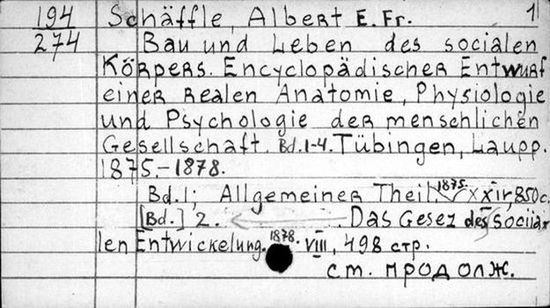 194 Schäffle, Albert E. Fr. 1
274 Bau und Leben des socialen
Körpers. Encyclopädischer Entwurf
einer realen Anatomie, Physiologie
und Psychologie der menschlichen
Gesellschaft. Bd.1-4. Tübingen, Laupp.
1875.-1878.
Bd.1; Allgemeiner Theil, 1875. XXIV, 850 с.
[Bd.] 2. Das Gesez des social
len Entwickelung. 1878. VIII, 498 стр.
см. продолж.